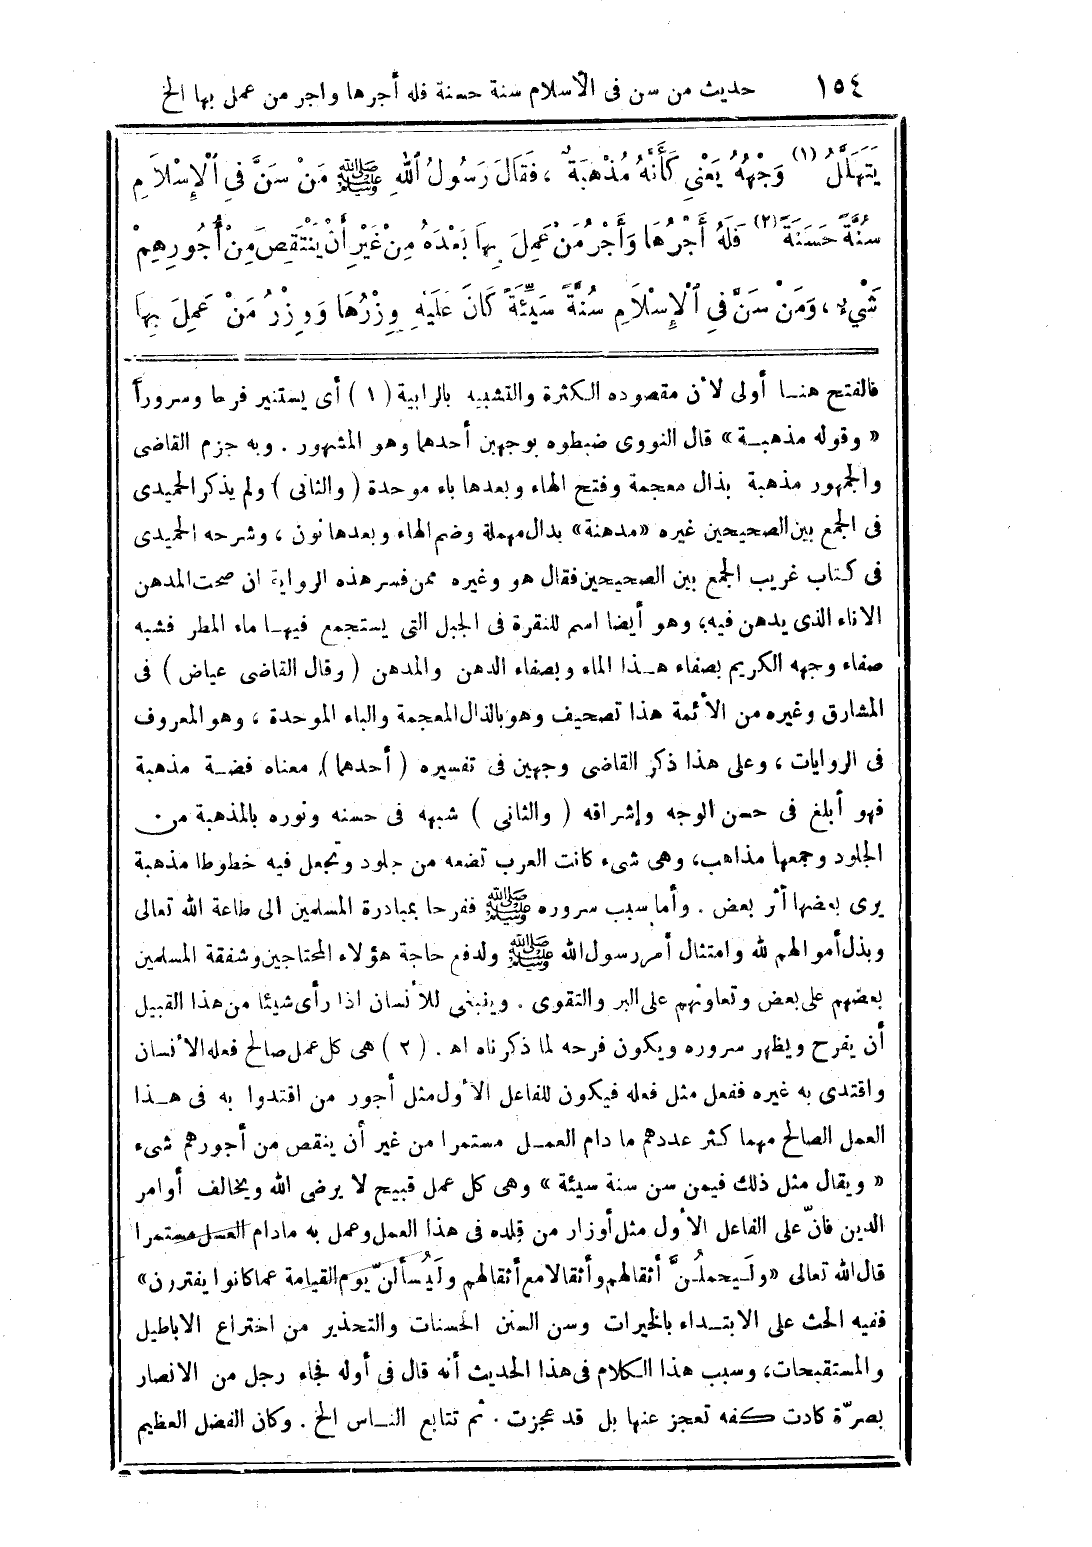 ١٥٤ حديث من سن فى الأسلام سنة حسنة فله أجرها واجر من عمل بها الخ
يَتَهَلَّلُ (١) وَجْهُهُ يَعْنِي كَأَنَّهُ مُذْهَبَةٌ ، فَقَالَ رَسُولُ اللهِ ﷺ مَنْ سَنَّ فِي الْإِسْلَامِ
سُنَّةً حَسَنَةً (٢) فَلَهُ أَجْرُهَا وَأَجْرُ مَنْ عَمِلَ بِهَا بَعْدَهُ مِنْ غَيْرِ أَنْ يَنْتَقِصَ مِنْ أُجُورِهِمْ
شَيْءٌ ، وَمَنْ سَنَّ فِي الْإِسْلَامِ سُنَّةً سَيِّئَةً كَانَ عَلَيْهِ وِزْرُهَا وَوِزْرُ مَنْ عَمِلَ بِهَا
فالفتح هنا أولى لأن مقصوده الكثرة والتشبيه بالرابية (١) أى يستنير فرحا وسروراً
« وقوله مذهبة » قال النووى ضبطوه بوجهين أحدهما وهو المشهور . وبه جزم القاضى
والجمهور مذهبة بذال معجمة وفتح الهاء وبعدها باء موحدة ( والثانى ) ولم يذكر الحميدى
فى الجمع بين الصحيحين غيره «مدهنة» بدال مهملة وضم الهاء وبعدها نون ، وشرحه الحميدى
فى كتاب غريب الجمع بين الصحيحين فقال هو وغيره ممن فسر هذه الرواية ان صحت المدهن
الاناء الذى يدهن فيه، وهو أيضا اسم للنقرة فى الجبل التى يستجمع فيها ماء المطر فشبه
صفاء وجهه الكريم بصفاء هذا الماء وبصفاء الدهن والمدهن ( وقال القاضى عياض ) فى
المشارق وغيره من الأئمة هذا تصحيف وهو بالذال المعجمة والباء الموحدة ، وهو المعروف
فى الروايات ، وعلى هذا ذكر القاضى وجهين فى تفسيره ( أحدهما ) معناه فضة مذهبة
فهو أبلغ فى حسن الوجه وإشراقه ( والثانى ) شبهه فى حسنه ونوره بالمذهبة من
الجلود وجمعها مذاهب، وهى شىء كانت العرب تضعه من جلود وتجعل فيه خطوطا مذهبة
يرى بعضها أثر بعض . وأما سبب سروره ﷺ ففرحا بمبادرة المسلمين الى طاعة الله تعالى
وبذل أموالهم لله وامتثال أمر رسول الله ﷺ ولدفع حاجة هؤلاء المحتاجين وشفقة المسلمين
بعضهم على بعض وتعاونهم على البر والتقوى . وينبغى للأنسان اذا رأى شيئا من هذا القبيل
أن يفرح ويظهر سروره ويكون فرحه لما ذكرناه اهـ . (٢) هى كل عمل صالح فعله الأنسان
واقتدى به غيره ففعل مثل فعله فيكون للفاعل الأول مثل أجور من اقتدوا به فى هذا
العمل الصالح مهما كثر عددهم ما دام العمل مستمرا من غير أن ينقص من أجورهم شىء
« ويقال مثل ذلك فيمن سن سنة سيئة » وهى كل عمل قبيح لا يرضى الله ويخالف أوامر
الدين فانّ على الفاعل الأول مثل أوزار من قلده فى هذا العمل وعمل به مادام العمل مستمرا
قال الله تعالى «ولَيحملُنَّ أثقالهم وأثقالا مع أثقالهم ولَيُسألنّ يوم القيامة عما كانوا يفترون»
ففيه الحث على الابتداء بالخيرات وسن السنن الحسنات والتحذير من اختراع الاباطيل
والمستقبحات، وسبب هذا الكلام فى هذا الحديث أنه قال فى أوله فجاء رجل من الانصار
بصرّة كادت كفه تعجز عنها بل قد عجزت . ثم تتابع الناس الخ . وكان الفضل العظيم